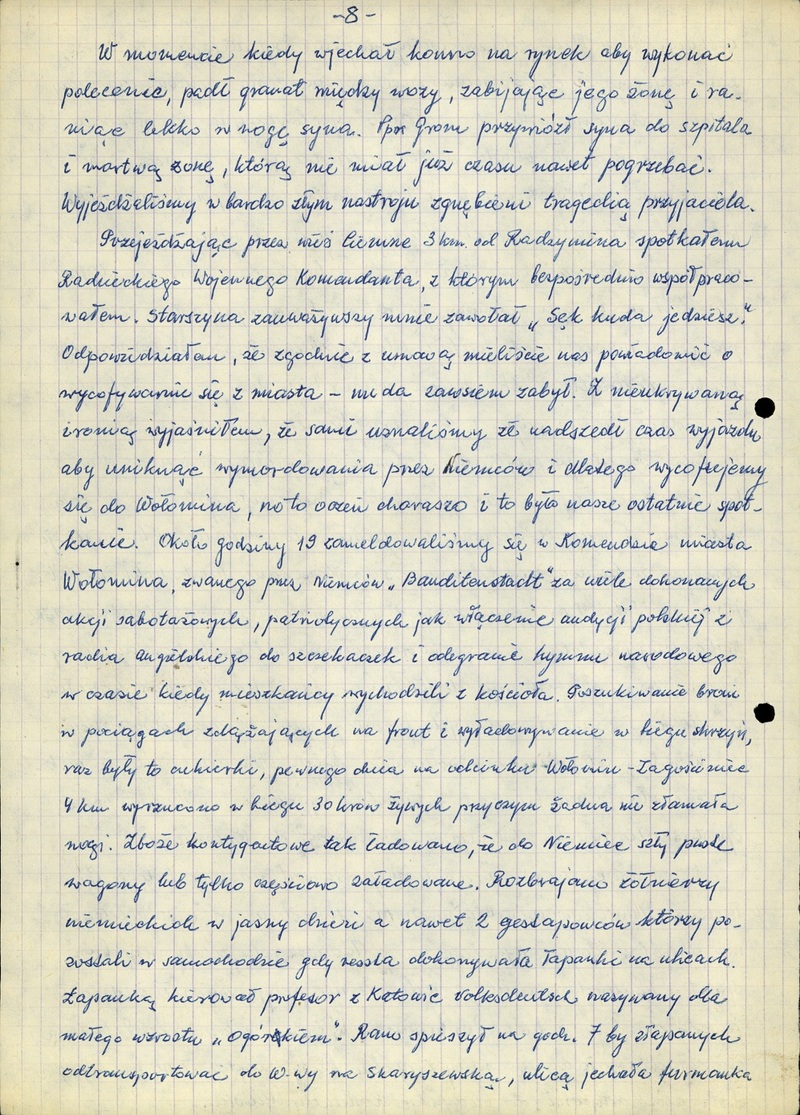 -8-
W momencie kiedy wjechał konno na rynek aby wykonać
polecenie, padł granat między wozy, zabijając jego żonę i ra-
niąc lekko w nogę syna. Ppor Grom przywiózł syna do szpitala
i martwą żonę, którą nie miał już czasu nawet pogrzebać.
Wyjeżdżaliśmy w bardzo złym nastroju zgnębieni tragedią przyjaciela.
Przejeżdżając przez wieś Ciemne 3 km. od Radzymina spotkałem
Radzieckiego Wojennego Komendanta, z którym bezpośrednio współpraco-
wałem. Starszyna zauważywszy mnie zawołał "Sęk kuda jedziesz".
Odpowiedziałem, że zgodnie z umową mieliście nas powiadomić o
wycofywaniu się z miasta - nu da zawsiem zabył. Z nieukrywaną
ironią wyjaśniłem, że sami uznaliśmy że nadszedł czas wyjazdu
aby uniknąć wymordowania przez Niemców i dlatego wycofujemy
się do Wołomina, no to oczeń charaszo i to było nasze ostatnie spot-
kanie. Około godziny 19 zameldowaliśmy się w Komendzie miasta
Wołomina, zwanego przez Niemców "Banditenstadt" za wiele dokonanych
akcji sabotażowych, patriotycznych jak włączenie audycji polskiej z
radia angielskiego do szczekaczek i odegranie hymnu narodowego
w czasie kiedy mieszkańcy wychodzili z kościoła. Poszukiwanie broni
w pociągach zdążających na front i wyładowywanie w biegu skrzyń,
raz były to cukierki, pewnego dnia na odcinku Wołomin - Zagościniec
4 km wyrzucono w biegu 30 krów żywych przyczym żadna nie złamała
nogi. Zboże kontygętowe tak ładowano, że do Niemiec szły puste
wagony lub tylko częściowo załadowane. Rozbrajano żołnierzy
niemieckich w jasny dzień a nawet 2 gestapowców którzy po-
zostali w samochodzie gdy reszta dokonywała łapanki na ulicach.
Łapanką kierował profesor z Katowic Volksdeutsch nazywany dla
małego wzrostu "Ogórkiem". Rano spieszył na godz. 7 by złapanych
odtransportować do W-wy na Skaryszewską, ulicą jechała furmanka